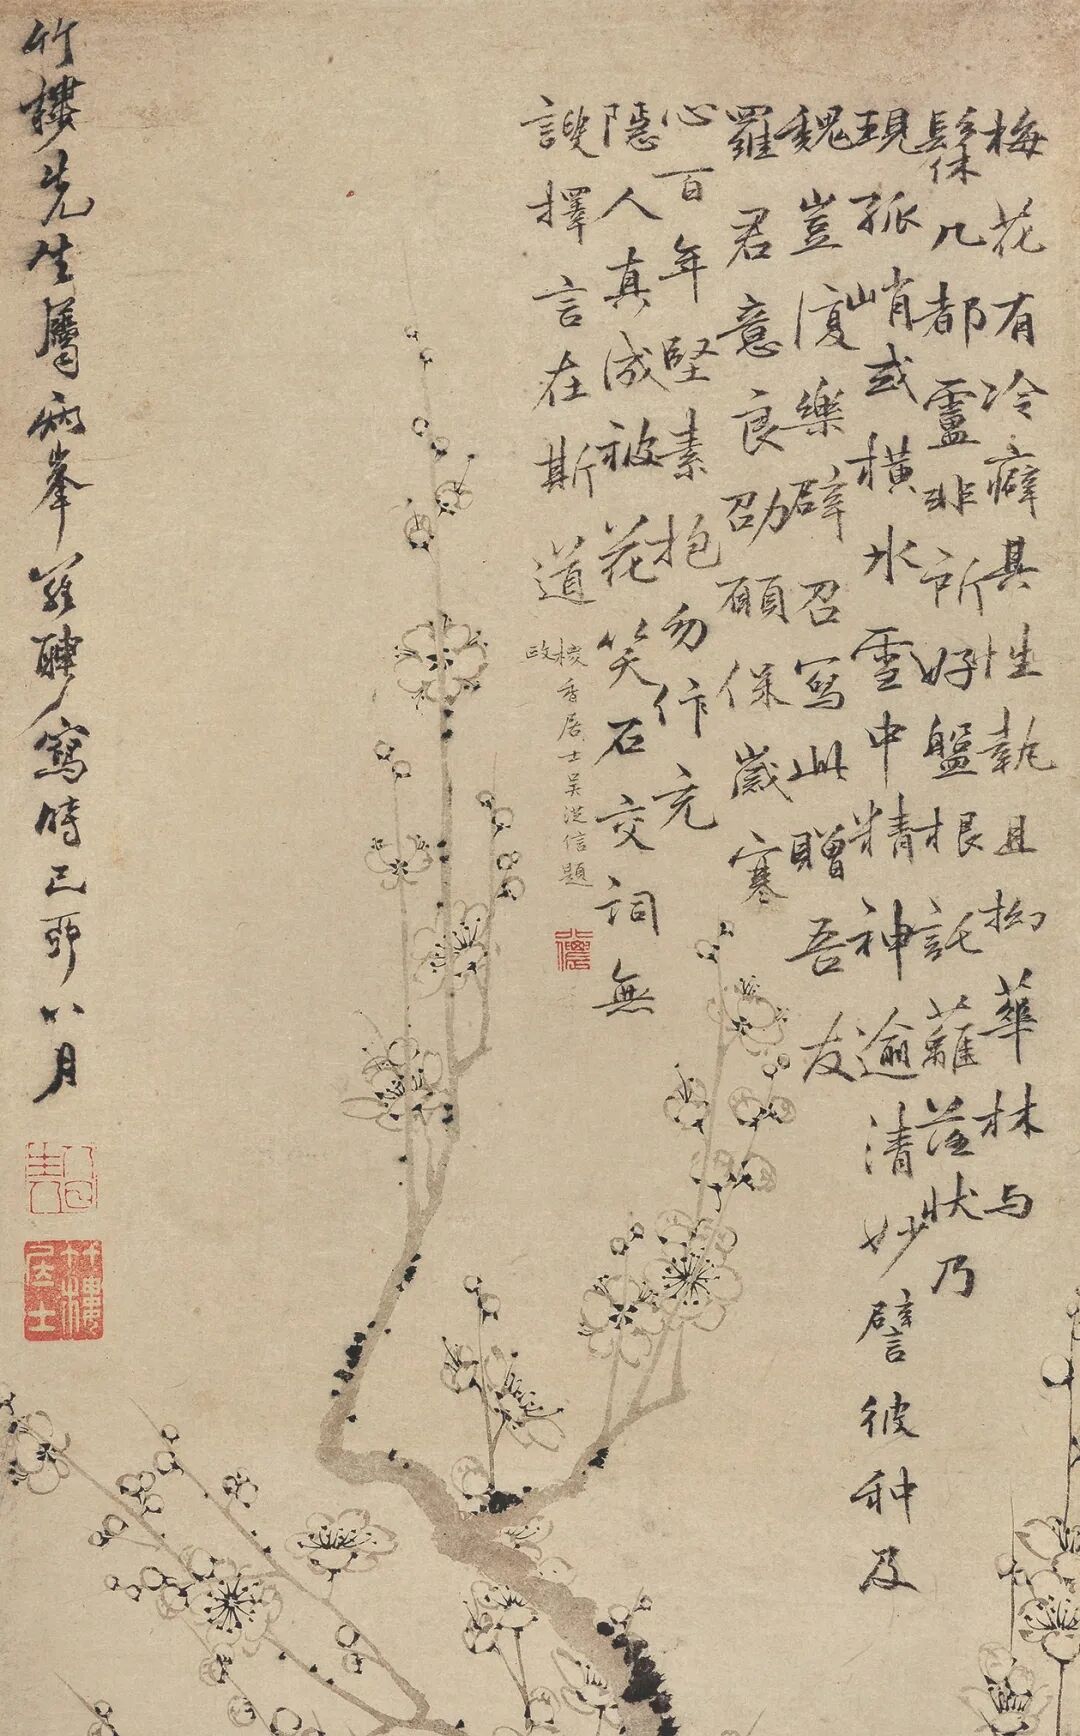 梅花有冷癖其性執且拗華林与
髹几都盧非所好盤根託蘿薩狀乃
現孤峭或横水雪中精神逾清妙譬彼种及
魏豈復樂辟召寫此贈吾友
羅君意良劭願保歲寒
心百年堅素抱勿作充
隱人真成被花笑石交詞無
諛擇言在斯道
棱香居士吴從信題
竹樓先生屬兩峯羅聘寫時己卯八月
竹樓居士